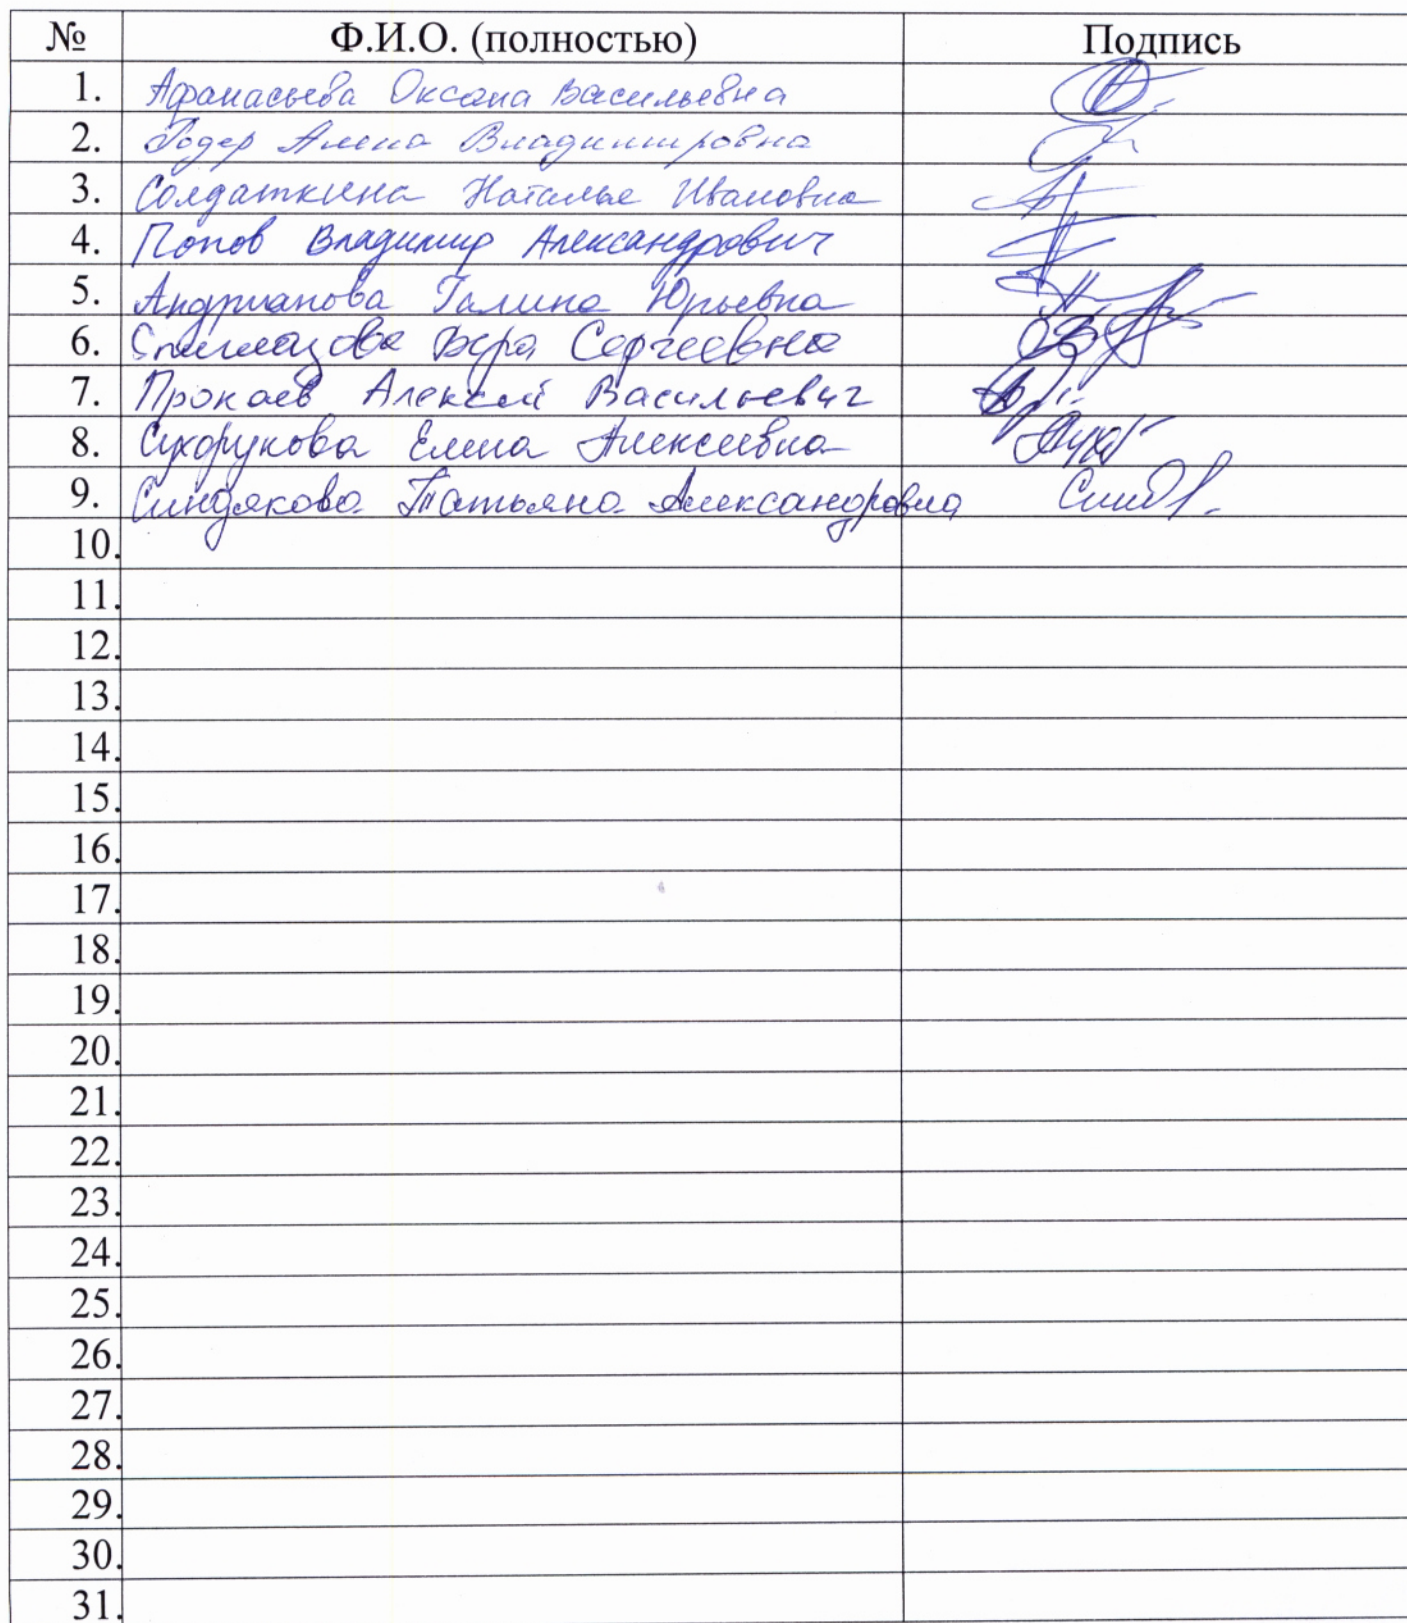 № Ф.И.О. (полностью) Подпись
1. Афанасьева Оксана Васильевна
2. Годер Алена Владимировна
3. Солдаткина Наталья Ивановна
4. Попов Владимир Александрович
5. Андрианова Галина Юрьевна
6. Вера Сергеевна
7. Прокаев Алексей Васильевич
8. Сухорукова Елена Алексеевна
9. Синдякова Татьяна Александровна
10.
11.
12.
13.
14.
15.
16.
17.
18.
19.
20.
21.
22.
23.
24.
25.
26.
27.
28.
29.
30.
31.